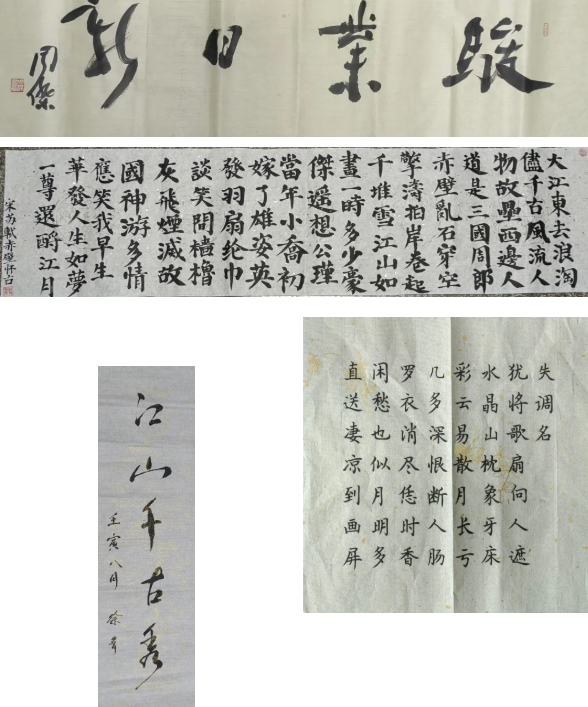 駿業日新
周傑
大江東去浪淘
儘千古風流人
物故壘西邊人
道是三國周郎
赤壁亂石穿空
驚濤拍岸卷起
千堆雪江山如
畫一時多少豪
傑遥想公瑾
當年小喬初
嫁了雄姿英
發羽扇纶巾
談笑間檣櫓
灰飛煙滅故
國神游多情
應笑我早生
華發人生如夢
一尊還酹江月
宋苏軾赤壁怀古
江山千古秀
壬寅八月 徐
失调名
犹将歌扇向人遮
水晶山枕象牙床
彩云易散月长亏
几多深恨断人肠
罗衣消尽恁时香
闲愁也似月明多
直送凄凉到画屏